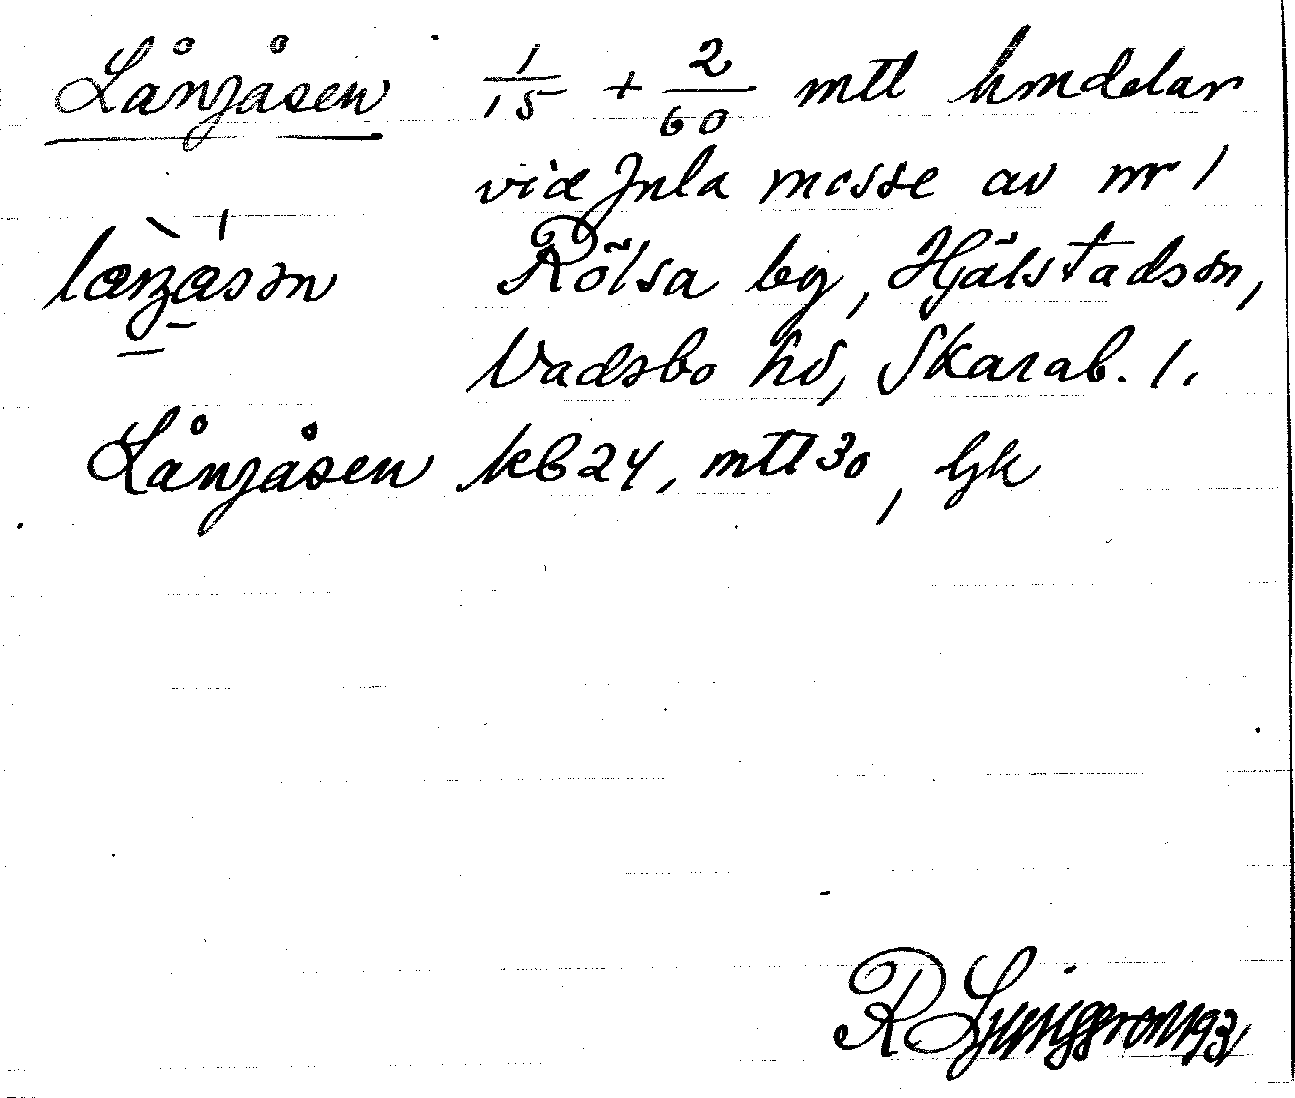 Långåsen 1/15 + 2/60 mtl hmdelar
vid Jula mosse av nr 1
Rölsa by, Hjälstadssn,
Vadsbo hd, Skarab. l.
Långåsen kb 24, mtl 30, ljk
R Ljunggren 1931